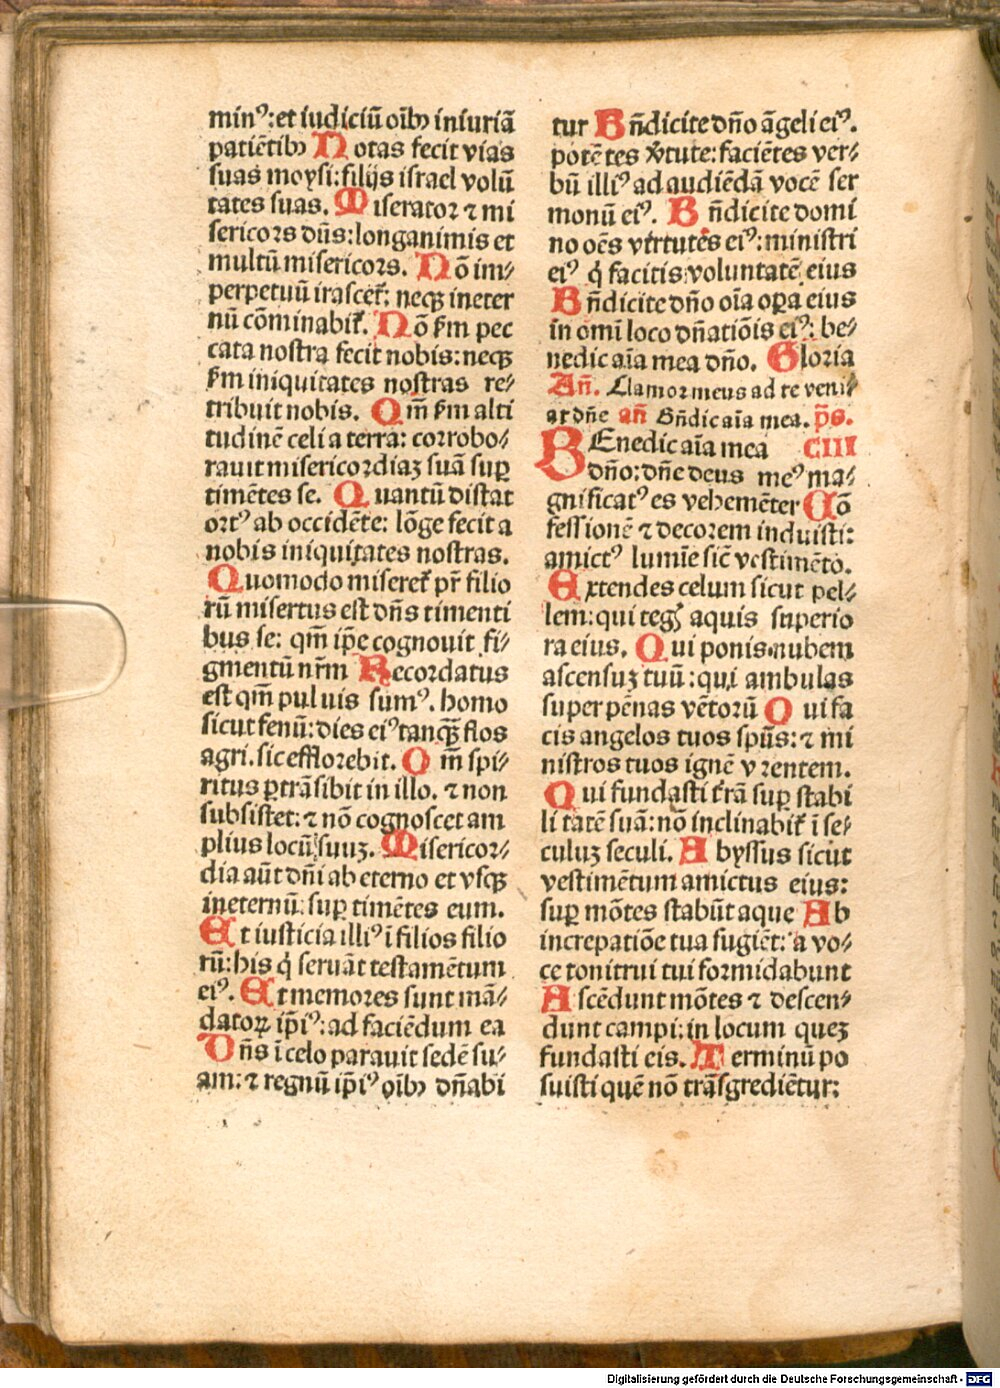 minꝰ: et iudiciū oībꝫ iniuriā
patiētibꝫ Notas fecit vias
suas moysi: filijs israel volū
tates suas. Miserator ⁊ mi
sericors dn̄s: longanimis et
multū misericors. Nō im⸗
perpetuū irascet᷑: neqꝫ ineter
nū cōminabit᷑. Nō ẜm pec
cata nostra fecit nobis: neqꝫ
ẜm iniquitates nostras re⸗
tribuit nobis. Qm̄ ẜm alti
tudinē celi a terra: corrobo⸗
rauit misericordiaꝫ suā suꝑ
timētes se. Quantū distat
ortꝰ ab occidēte: lōge fecit a
nobis iniquitates nostras.
Quomodo miseret᷑ pr̄ filio
rū misertus est dn̄s timenti
bus se: qm̄ ip̄e cognouit fi⸗
gmentū nr̄m Recordatus
est qm̄ puluis sumꝰ. homo
sicut fenū: dies eiꝰ tanqꝫ̄ flos
agri. sic efflorebit. Qm̄ spi⸗
ritus ꝑtrāsibit in illo. ⁊ non
subsistet: ⁊ nō cognoscet am
plius locū suuꝫ. Misericor⸗
dia aūt dn̄i ab eterno et vsqꝫ
ineternū: suꝑ timētes eum.
Et iusticia illiꝰ ī filios filio
rū: his q̇ seruāt testamētum
eiꝰ. Et memores sunt mā⸗
datoꝝ ip̄iꝰ: ad faciēdum ea
Dn̄s ī celo parauit sedē su⸗
am: ⁊ regnū ip̄iꝰ oībꝫ dn̄abi
tur Bn̄dicite dn̄o āgeli eiꝰ.
potētes v̓tute: faciētes ver⸗
bū illiꝰ ad audiēdā vocē ser
monū eiꝰ. Bn̄dicite domi
no oēs virtutes eiꝰ: ministri
eiꝰ q̇ facitis voluntatē eius
Bn̄dicite dn̄o oīa oꝑa eius
in omī loco dn̄atiōis eiꝰ: be⸗
nedic aīa mea dn̄o. Gloria
An̄. Clamor meus ad te veni⸗
at dn̄e an̄ Bn̄dic aīa mea. p̄s.
BEnedic aīa mea CIII
dn̄o: dn̄e deus meꝰ ma⸗
gnificatꝰ es vehemēter Cō
fessionē ⁊ decorem induisti:
amictꝰ lumīe sic̄ vestimēto.
Extendes celum sicut pel⸗
lem: qui tegꝭ aquis superio
ra eius. Qui ponis nubem
ascensuꝫ tuū: qui ambulas
super pēnas vētorū Qui fa
cis angelos tuos sp̄us: ⁊ mi
nistros tuos ignē vrentem.
Qui fundasti t̓rā suꝑ stabi
litatē suā: nō inclinabit᷑ ī se⸗
culuꝫ seculi. Abyssus sicut
vestimētum amictus eius:
suꝑ mōtes stabūt aque Ab
increpatiōe tua fugiēt: a vo⸗
ce tonitrui tui formidabunt
Ascēdunt mōtes ⁊ descen⸗
dunt campi: in locum queꝫ
fundasti eis. Terminū po
suisti quē nō trāsgrediētur:
Digitalisierung gefördert durch die Deutsche Forschungsgemeinschaft - DFG